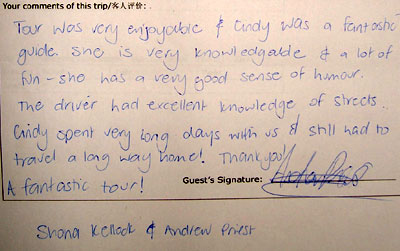 Your comments of this trip/客人评价: .
Tour was very enjoyable & Cindy was a fantastic
guide. She is very knowledgable & a lot of
fun - she has a very good sense of humour.
The driver had excellent knowledge of streets.
Cindy spent very long days with us & still had to
travel a long way home! Thankyou!
A fantastic tour!
Guest's Signature:
Shona Kellock & Andrew Priest